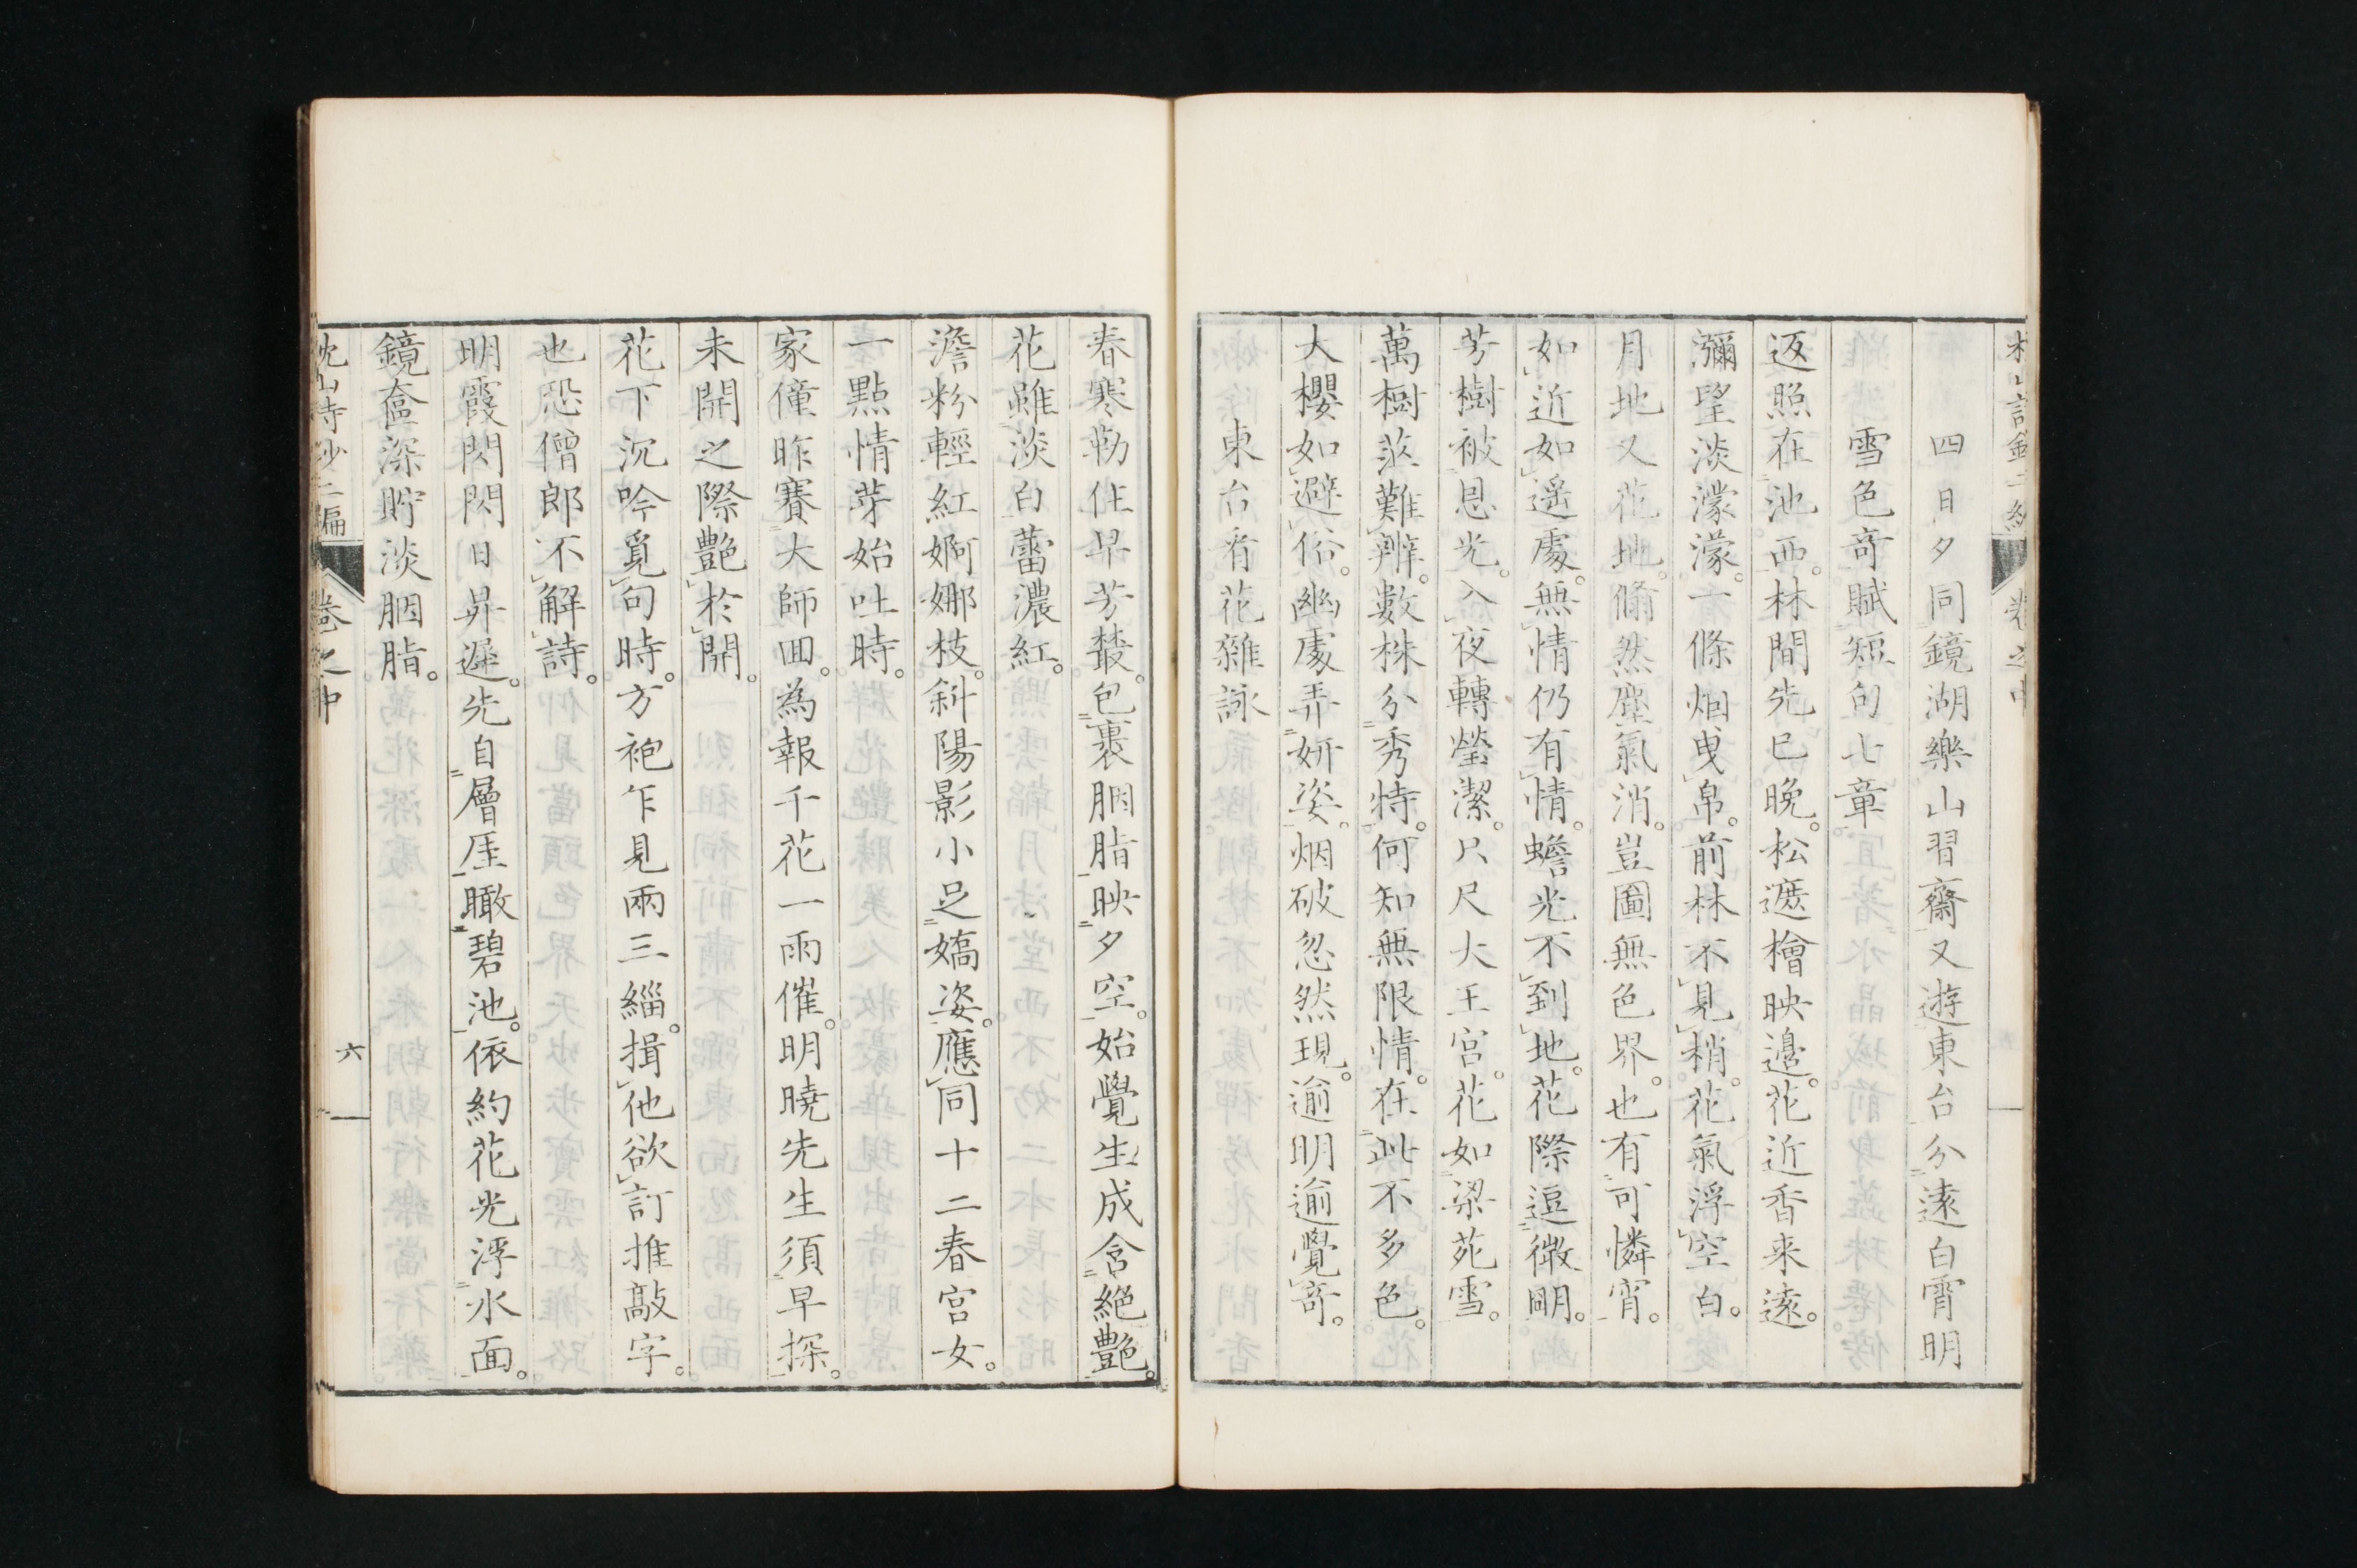 四日夕同鏡湖樂山習齋又遊東台分遠白霄明
雪色奇賦短句七章
返照在池西。林間先已晚。松遮檜映邊。花近香来遠。
彌望淡濛濛。一條烟曳帛。前林不見梢。花氣浮空白。
月地又花地。翛然塵氣消。豈圖無色界。也有可憐宵。
如近如遥處。無情仍有情。蟾光不到地。花際逗微明。
芳樹被恩光。入夜轉瑩潔。只尺大王宮。花如梁苑雪。
萬樹茲難辨。數株分秀特。何知無限情。在此不多色。
大櫻如避俗。幽處弄妍姿。烟破忽然現。逾明逾覺奇。
東台看花雜詠
春寒勒住早芳叢。包裹胭脂映夕空。始覺生成含絕艷。
花雖淡白蕾濃紅。
澹粉輕紅婀娜枝。斜陽影小足嬌姿。應同十二春宮女。
一點情芽始吐時。
家僮昨賽大師回。為報千花一雨催。明曉先生須早探。
未開之際艷於開。
花下沉吟覓句時。方袍乍見兩三緇。揖他欲訂推敲字。
也恐僧郎不解詩。
明霞閃閃日昇遲。先自層厓瞰碧池。依約花光浮水面。
鏡奩深貯淡胭脂。
枕山詩鈔二編 卷之中 六